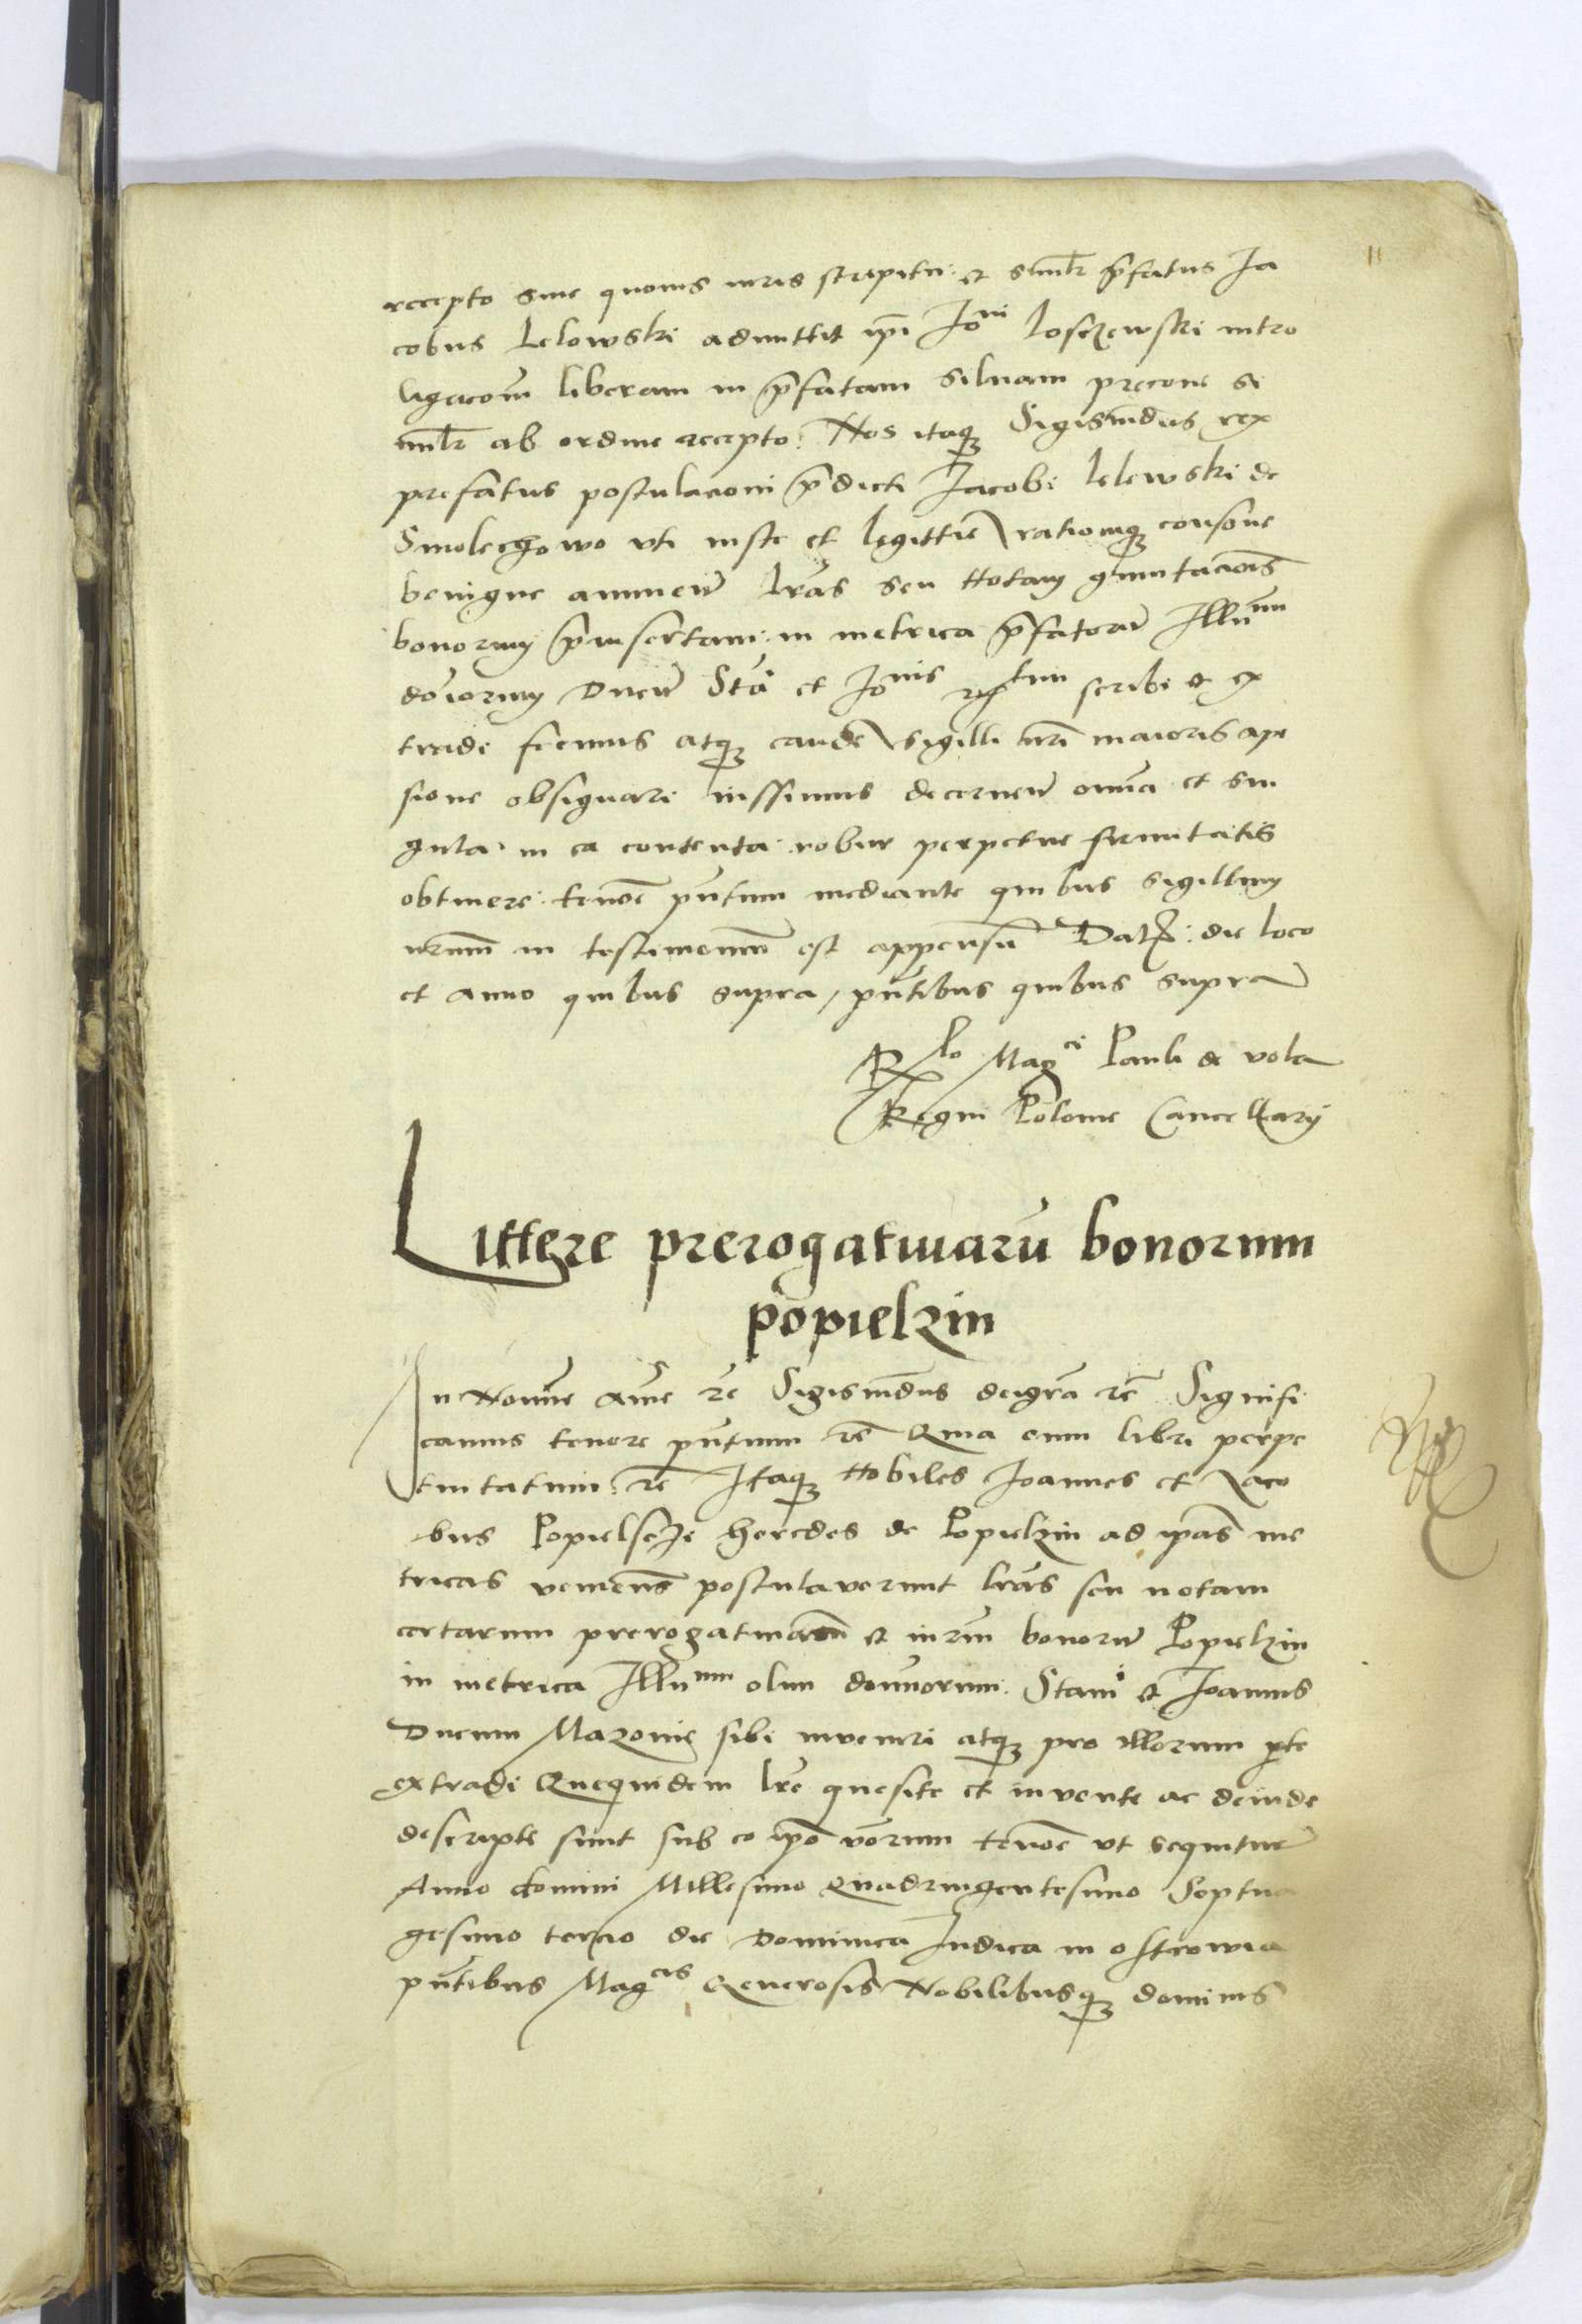 11
recepto sine quovis iuris strepitu et simlr p̄fatus Ja
cobus Lelowski admittit ip̄i Joni Losczewski intro
ligacōm liberam in p̄fatam siluam precone si
milr ab ordine recepto. Nos itaq Sigismūdus rex
prefatus postulacioni p̄dicti Jacobi Lelewski de
Smolechowo uti iuste et legittīe rationiq consone
benigne annuen lr̄as seu Notam cōmutacionis
bonorum p̄insertam in metrica p̄fator Illum
dōiorum Ducū Sta et Jonis scribi et ex
tradi fecimus atq eande sigilli nr̄i maioris ape
sione obsignari iussimus decernen omīa et sin
gula in ea contenta robur perpetue firmitatis
obtinere tenōe pn̄tium mediante quibus sigillum
nr̄um in testimonium est appensū Dat die loco
et anno quibus supra, pn̄tibus quibus supra
Rlo Magci Pauli de vola
Regni Polonie Cancellarij
Littere prerogatiuarū bonorum
popielzin
In Noīe Amē rc̄ Sigismūdus dei grā rc̄ Signifi
camus tenore pn̄tium rc̄ Quia cum libri perpe
tuitatum rc̄ Itaq Nobiles Joannes et Jaco
bus Popielscze heredes de Popielzin ad ip̄as me
tricas venienš postulaverunt lr̄as seu notam
certarum prerogatiuarū et iuriū bonorū Popielzin
in metrica Illum olim dominorum Stani et Joannis
Ducum Mazovie sibi inveniri atq pro illorum pte
extradi Quequidem lr̄e quesite et invente ac deinde
descripte sunt sub eo ip̄o v̄borum tenōe ut sequitur
Anno domini Millesimo Quadringentesimo Septua
gesimo tercio die Dominica Judica in ostrowia
pn̄tibus Magcis Generosis Nobilibusq dominis